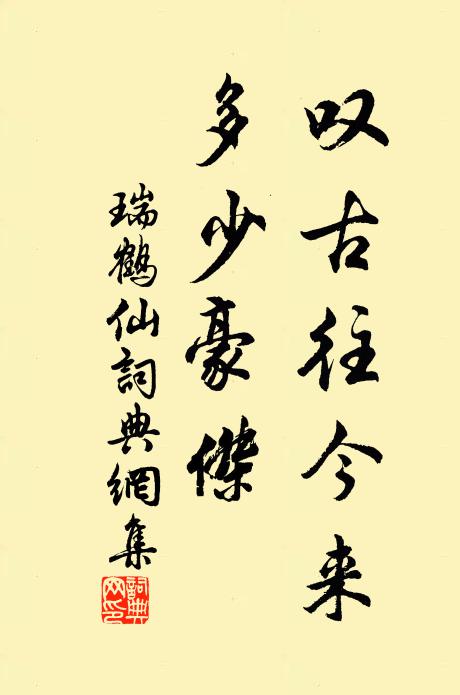 叹古往今来
多少豪傑
瑞鶴仙詞典網集
詞典网印